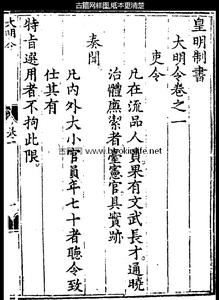 古籍网样图,纸本更清楚
皇明制書
大明令卷之一
吏令
凡在流品人員果有文武長才通曉
治體廉潔者臺憲官具實跡
奏聞
凡內外大小官員年七十者聽令致
仕其有
特旨選用者不拘此限
大明令
www.bookinlife.net